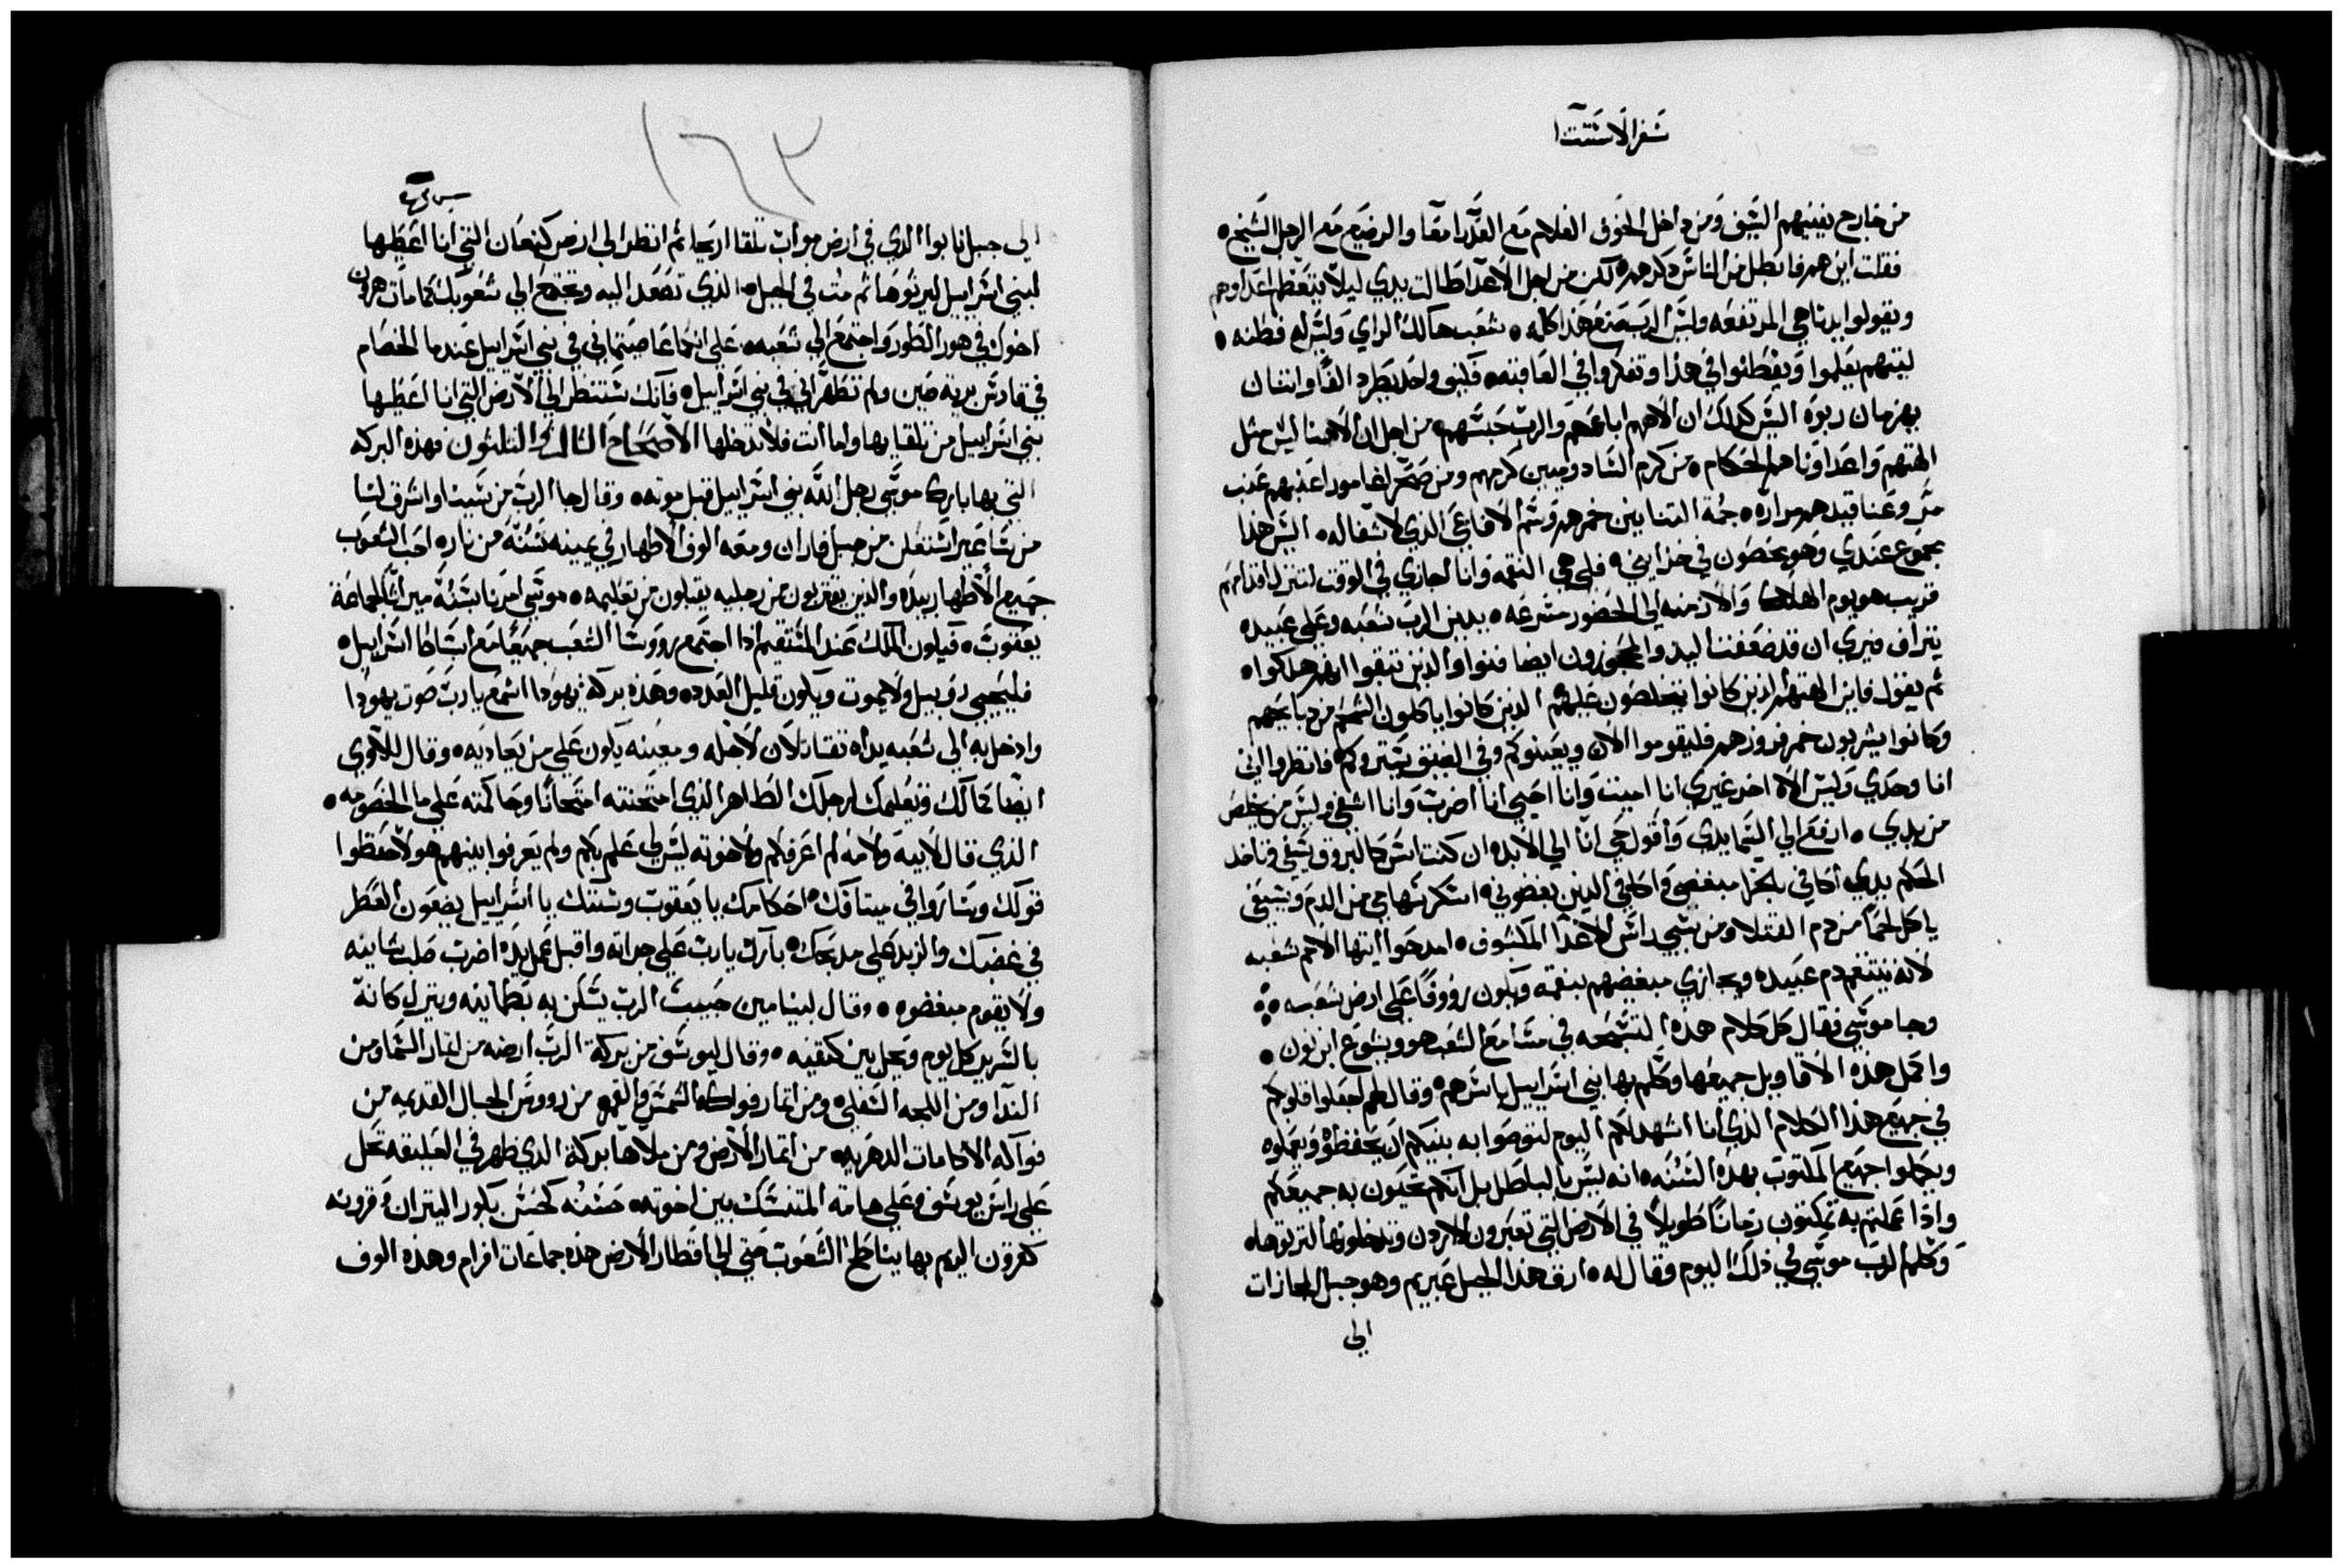 سفر الاستتنا
من خارج يفنيهم السيف ومن داخل الخوف الغلام مع العدرا معًا والرضيع مع الرجل الشيخ ه
فقلت اين هم فابطل من الناس دكرهم لكن من اجل الاعدا طالت يدي ليلا يتعظم اعداوهم
ويقولوا يدنا هي المرتفعه وليس الرب صنع هذا كله ه شعب هالك الراي وليس له فطنه ه
ليتهم يعلموا ويفطنوا في هذا وتفكروا في العاقبه ه فكيف واحد يطرد الفًا واتنان
يهزمان ربوه اليس كذلك ان الاههم اباعهم والرب حبسهم ه من اجل ان الاهنا ليس مثل
الهتهم واعداونا هم الحكام ه من كرم السادوميين كرمهم ومن صحرا غامورا عنبهم عنب
مر وعناقيدهم مراره ه حمة التنانين خمرهم وسم الافاعي الذي لا شفا له ه اليس هذا
مجموع عندي وهو مخصون في خزايني ه فلي هي النقمه وانا اجازي في الوقت لتنزل اقدامهم
قريب هو يوم الهلاك والازمنه الى الحضور مسرعه ه يدين الرب شعبه وعلى عبيده
يتراف فيري ان قد ضعفت اليد والمحوزون ايضا فنوا والذين تبقوا انهم هلكوا ه
ثم يقول فاين الهتهم الذين كانوا يتخلصون عليهم الذين كانوا ياكلون الشحم من دبايحهم
وكانوا يشربون خمر فروزهم فليقوموا الان ويعينوكم وفي الضيق يستروكم فانظروا اني
انا وحدي وليس الاه اخر غيري انا اميت وانا احيي انا اضرب وانا اشفي وليس من يخلص
من يدي ه ارفع الي السما يدي واقول حي انا الي الابد ه ان كنت اسن كالبروق سيفي وتاخد
الحكم يدي اكافي بالجزا مبغضي واكافي الدين بغضوني ه اسكر سهامي من الدم وسيفي
ياكل لحمًا من دم القتلا ومن سبي راس الاعدا المكشوف ه امدحوا ايتها الامم شعبه
لانه ينتقم دم عبيده ويجازي مبغضهم بنقمه ويكون رووفًا على ارض شعبه
وجا موسي فقال كل كلام هذه التسبحه في مسامع الشعب هو ويشوع ابن نون ه
واكمل هذه الاقاويل جميعها وكلم بها بني اسراييل باسرهم ه وقال لهم اجعلوا قلوبكم
في جميع هذا الكلام الذي انا اشهد لكم اليوم لتوصوا به بنيكم ان يحفظوه ويعملوه
ويكملوا جميع المكتوب بهذه السنه ه انه ليس بالباطل بل انكم تحيون به جميعكم
واذا عملتم به تمكتون زمانًا طويلًا في الارض التي تعبرون الاردن وتدخلونها لترثوها ه
وكلم الرب موسي في ذلك اليوم وقال له ه ارق هذا الجبل عبريم وهو جبل المجازات
الى
١٦٣
الي جبل نابوا الدي في ارض مواب تلقا اريحا ثم انظر الي ارض كنعان التي انا اعطيها
لبني اسراييل ليرثوها ثم مت في الجبل ه الذي تصعد اليه وتجتمع الي شعوبك كما مات هرون
اخوك في هور الطور واجتمع الي شعبه ه على انكما عاصيتماني في بني اسراييل عند ما الخصام
في قادس برية صين ولم تطهراني في بني اسراييل ه فانك ستنظر الي الارض التي انا اعطيها
بني اسراييل من تلقايها واما انت فلا تدخلها الاصحاح التالت والتلتون فهذه البركه
التي بها بارك موسي رجل الله بني اسراييل قبل موته ه وقال جا الرب من سينا واشرق لنا
من ساعير استعلن من جبل فاران ومعه الوف الاطهار في يمينه سنة من نار ه احب الشعوب
جميع الاطهار بيده والذين يقتربون من رجليه يقبلون من تعليمه ه موسي امرنا بسنة ميراثا لجماعة
يعقوب ه فيكون الملك عند المستقيم اذا اجتمع رووسا الشعب جميعًا مع اسباط اسراييل ه
فليحيي روبيل ولا يموت ويكون قليل العدد ه وهذه بركة يهودا اسمع يا رب صوت يهودا
وادخل به الي شعبه يداه تقاتلان لاجله ومعينه يكون على من يعاديه ه وقال للاوي
ايضا كمالك وتعليمك لرجلك الطاهر الذي امتحنته امتحانًا وحاكمته على ما الخصومه ه
الذي قال لابيه ولامه لم اعرفكم ولاخوته ليس لي علم بكم ولم يعرفوا بنيهم هولا حفظوا
قولك وساروا في ميتاقك ه احكامك يا يعقوب وسنتك يا اسراييل يضعون العطر
في غضبك والزبد على مدبحك ه بارك يا رب على جراته واقبل عمل يده اضرب صلب شانيه
ولا يقوم مبغضوه ه وقال لبنيامين حبيب الرب يسكن به بطمانينه وينزل كانه
بالسرير كل يوم ويحل بين كتفيه ه وقال ليوسف من بركة الرب ارضه من اتمار السما ومن
الندا ومن اللجه السفلي ه ومن اتمار فواكه الشمس والقمر من رووس الجبال القديمه من
فواكه الاكامات الدهريه ه من اتمار الارض ومن ملاها بركة الدي ظهر في العليقه تحل
على راس يوسف وعلى هامة المتنسك بين اخوته ه حسنه كحسن بكور التيران وقرونه
كقرون الريم بها يناطح الشعوب حتي الي اقطار الارض هذه جماعات افرام وهذه الوف